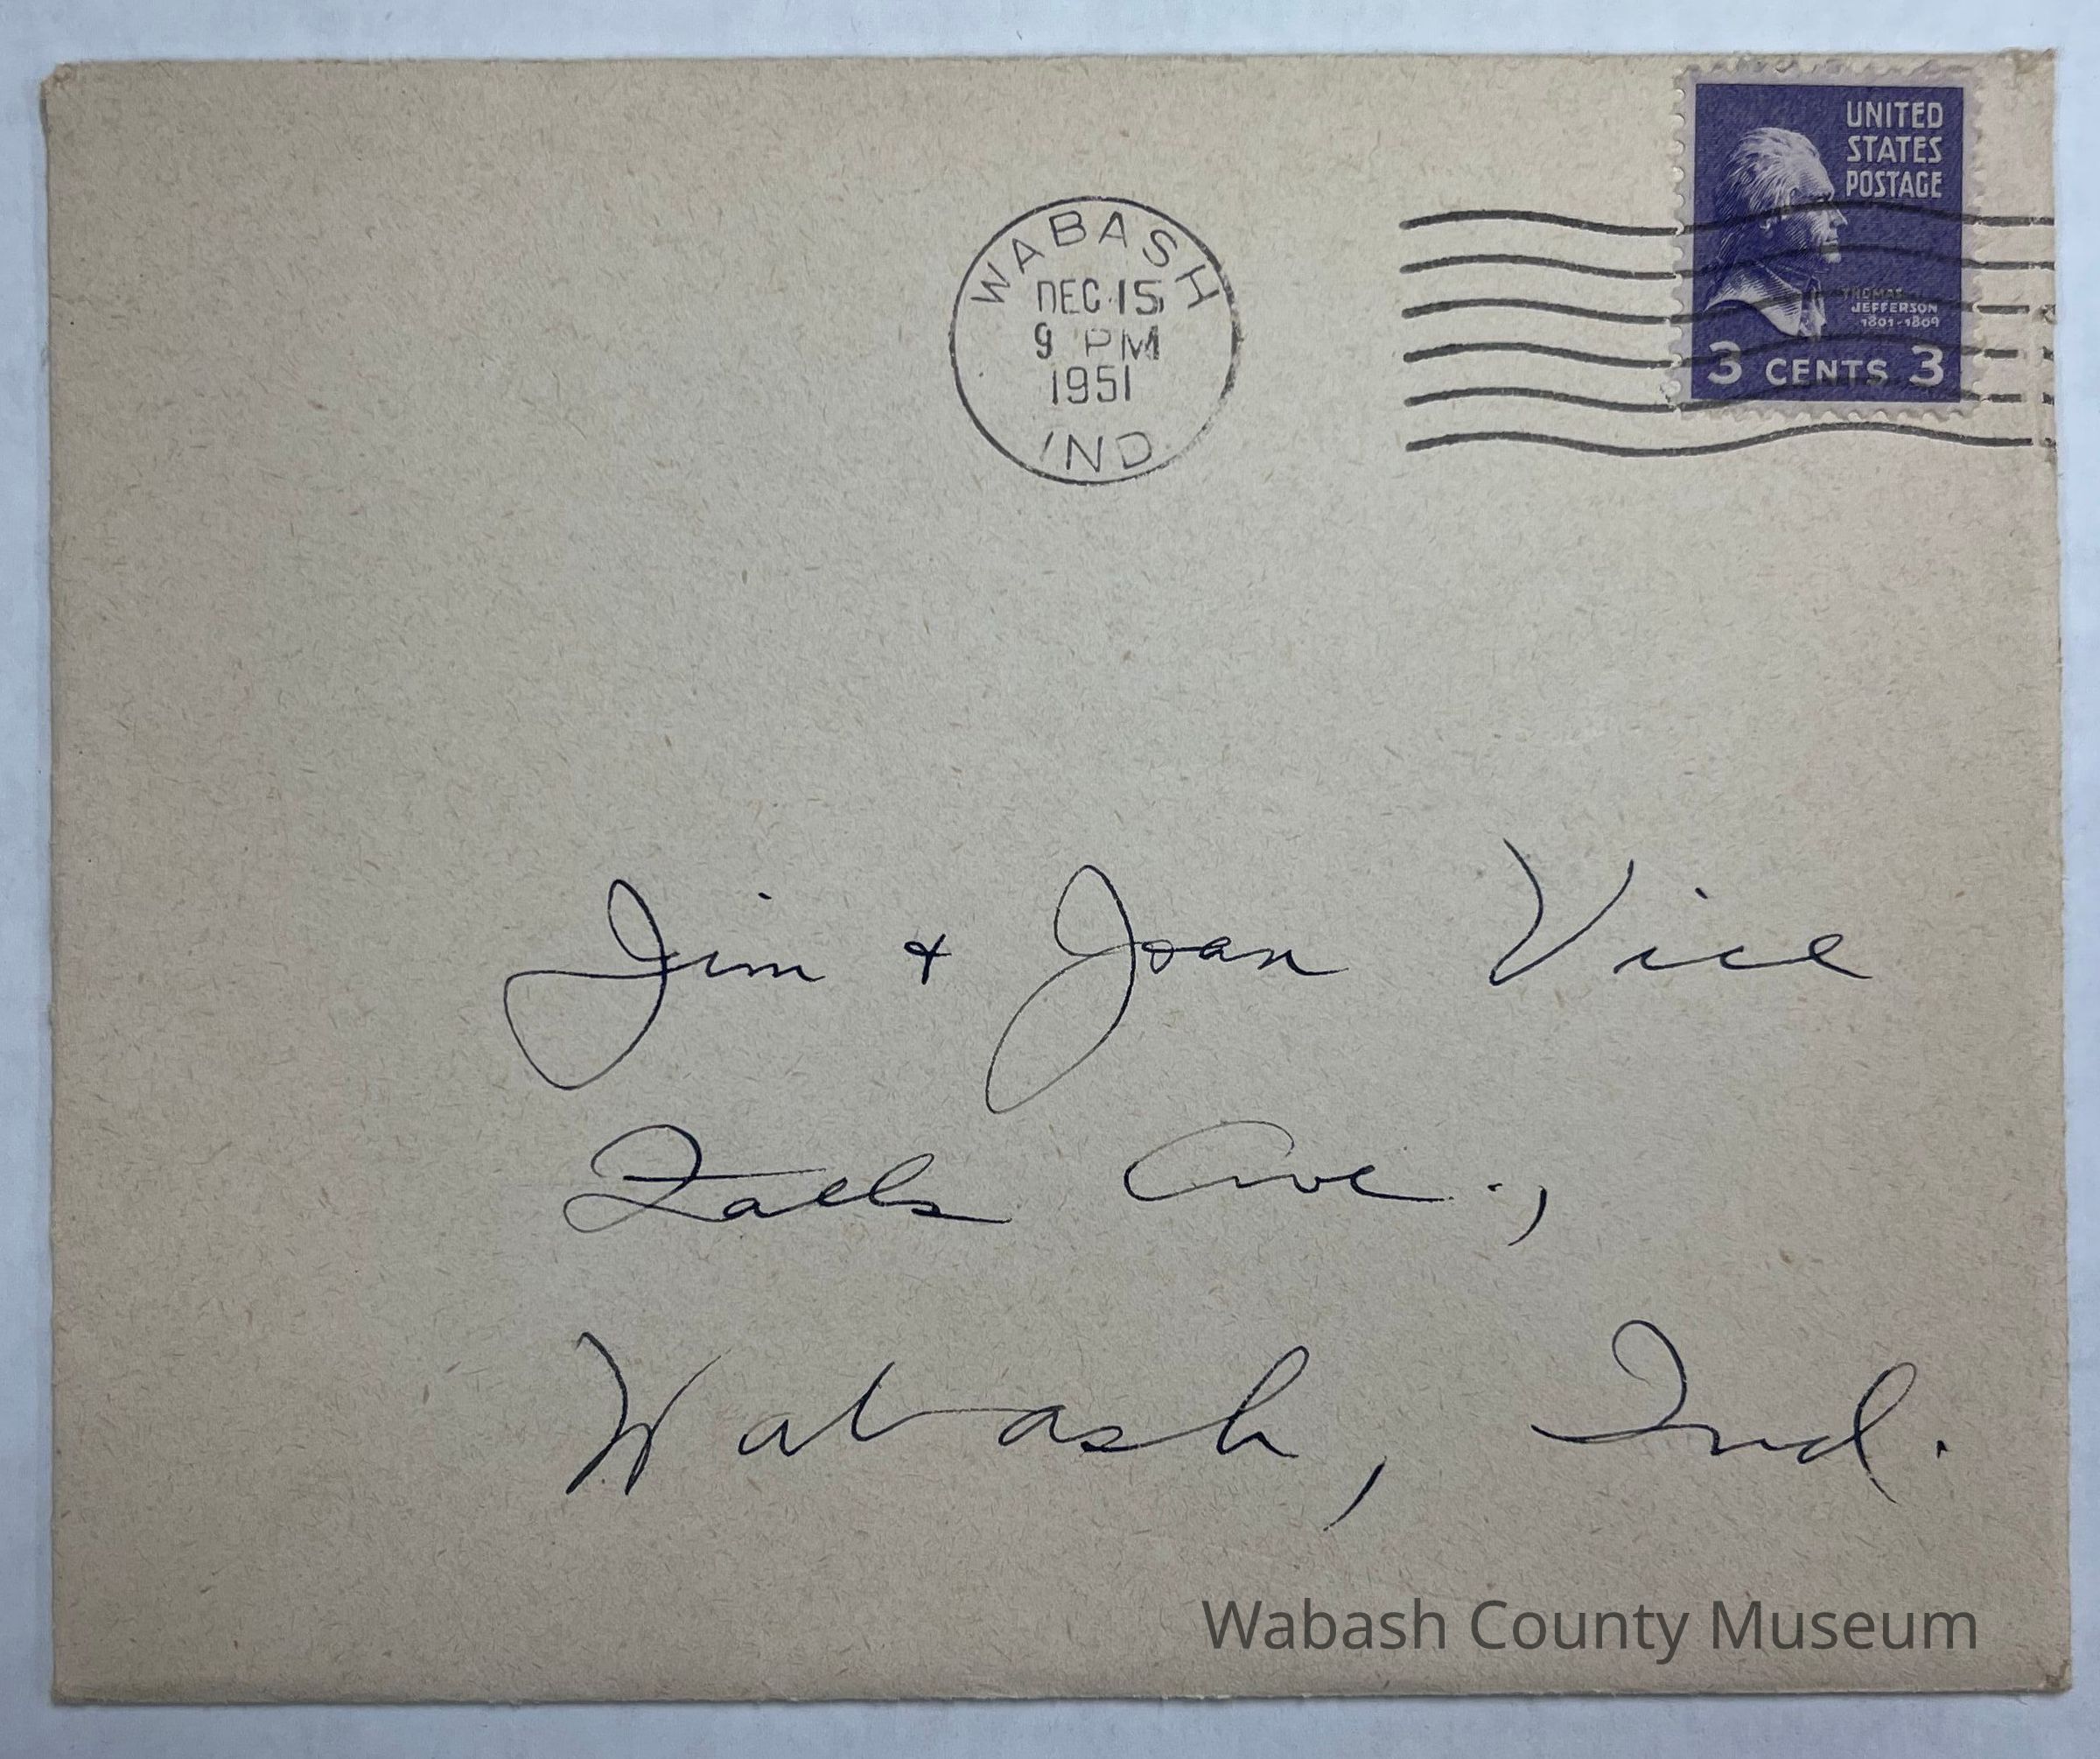 WABASH
DEC 15
9 PM
1951
IND
UNITED
STATES
POSTAGE
THOMAS
JEFFERSON
1801-1809
3 CENTS 3
Jim + Joan Vice
Falls Ave.,
Wabash, Ind.
Wabash County Museum